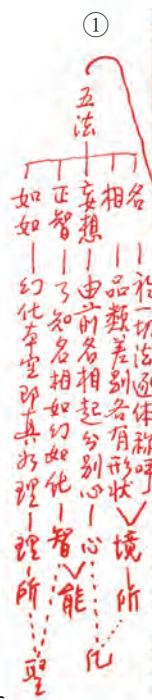 ①
五法
名—於一切法逐體稱呼
相—品類差別各有形狀
境—所
妄想—由前名相起分別心—心
凡
正智—了知名相如幻如化—智
能
如如—幻化本空即真如理—理—所
聖